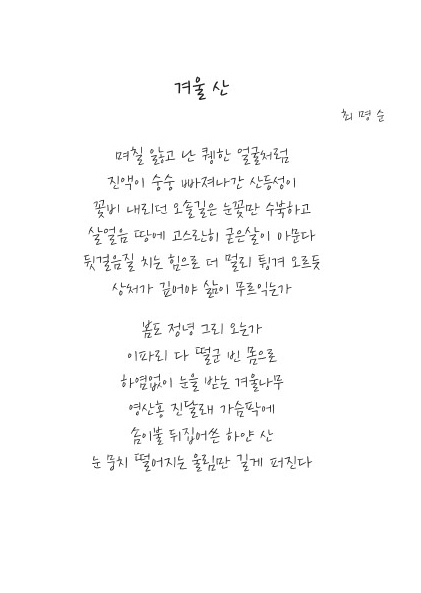 겨울 산
최명순
며칠 앓고 난 퀭한 얼굴처럼
진액이 숭숭 빠져나간 산등성이
꽃비 내리던 오솔길은 눈꽃만 수북하고
살얼음 땅에 고스란히 굳은살이 아문다
뒷걸음질 치는 힘으로 더 멀리 튕겨 오르듯
상처가 깊어야 삶이 무르익는가
봄도 정녕 그리 오는가
이파리 다 떨군 빈 몸으로
하염없이 눈을 받는 겨울나무
영산홍 진달래 가슴팍에
솜이불 뒤집어쓴 하얀 산
눈 뭉치 떨어지는 울림만 길게 퍼진다